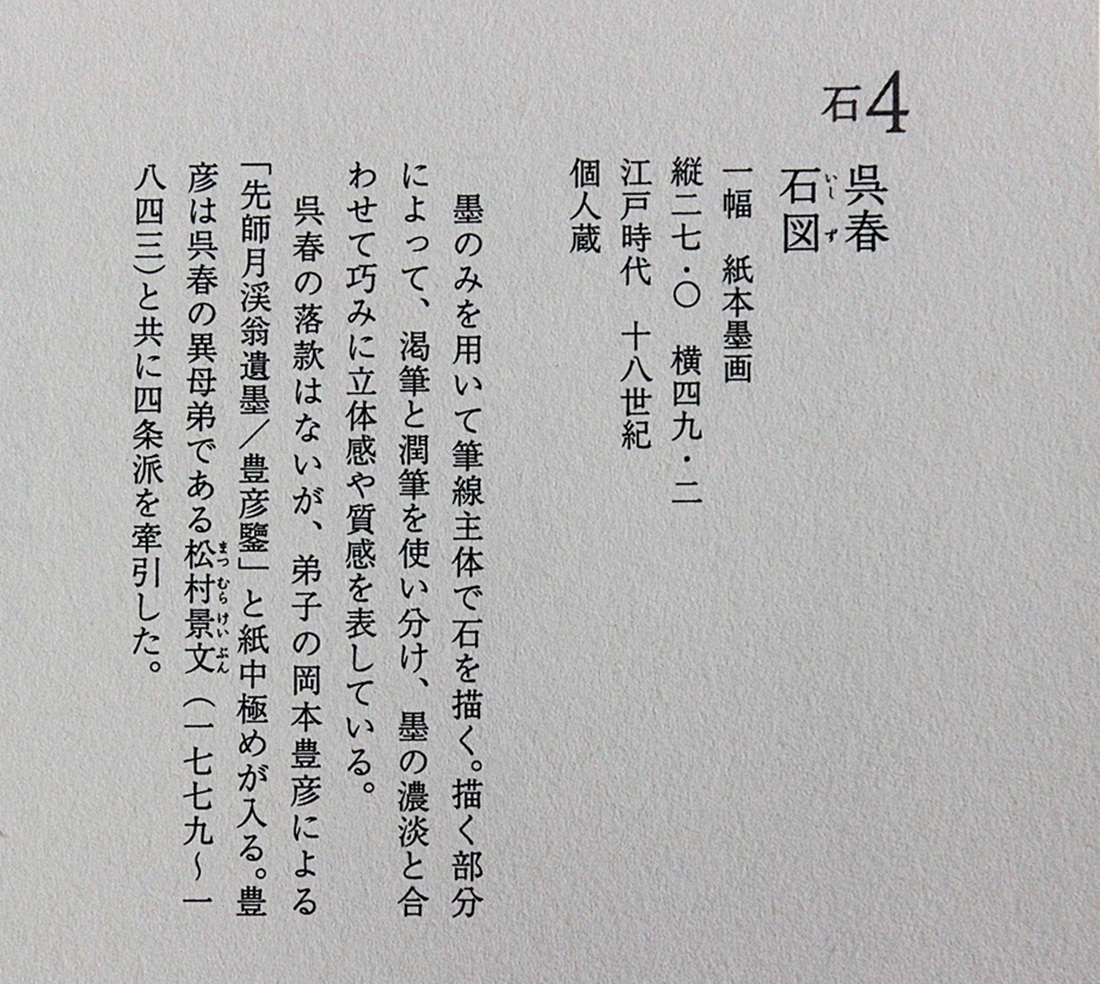 石4
呉春
石図
いしず
一幅　紙本墨画
縦二七・〇　横四九・二
江戸時代　十八世紀
個人蔵
墨のみを用いて筆線主体で石を描く。描く部分
によって、渇筆と潤筆を使い分け、墨の濃淡と合
わせて巧みに立体感や質感を表している。
呉春の落款はないが、弟子の岡本豊彦による
「先師月渓翁遺墨／豊彦鑒」と紙中極めが入る。豊
彦は呉春の異母弟である松村景文（一七七九～一
まつむらけいぶん
八四三）と共に四条派を牽引した。